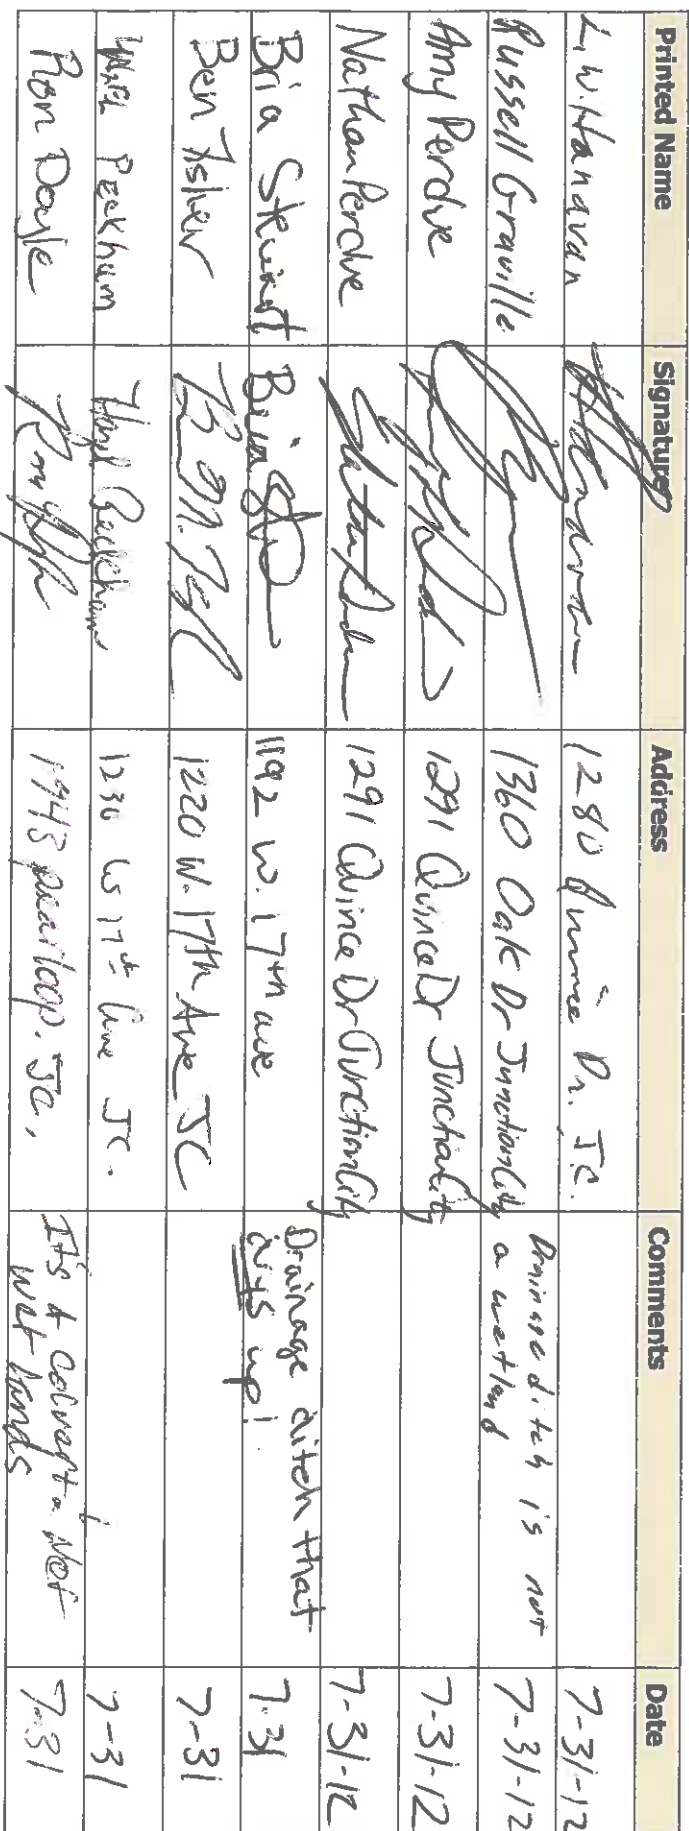 Printed Name Signature Address Comments Date
L. W. Hanavan 1280 Quince Dr. J.C. 7-31-12
Russell Graville 1360 Oak Dr Junction City Drainage ditch is not a wetland 7-31-12
Amy Perdue 1291 Quince Dr Junction City 7-31-12
Nathan Perdue 1291 Quince Dr Junction City 7-31-12
Bria Stewart Bria St 1192 W. 17th ave Drainage ditch that drys up! 7-31
Ben Fisher 1220 W. 17th Ave JC 7-31
Peckham 1230 W 17th Ave JC. 7-31
Ron Doyle 1948 JC, It's A Not wet lands 7-31